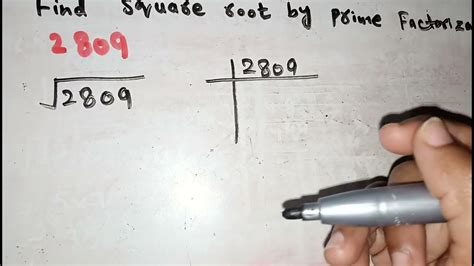 Find square root by Prime Factoriza
2809
√2809
2809